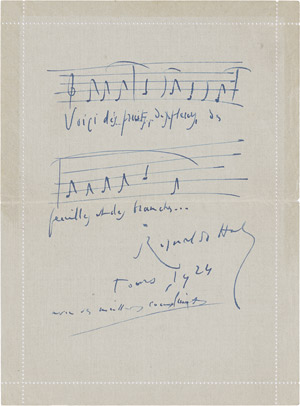 Voici des fruits, des fleurs, des
feuilles et des branches...
Reynaldo Hahn
Tours, 1924
avec ses meilleurs compliments